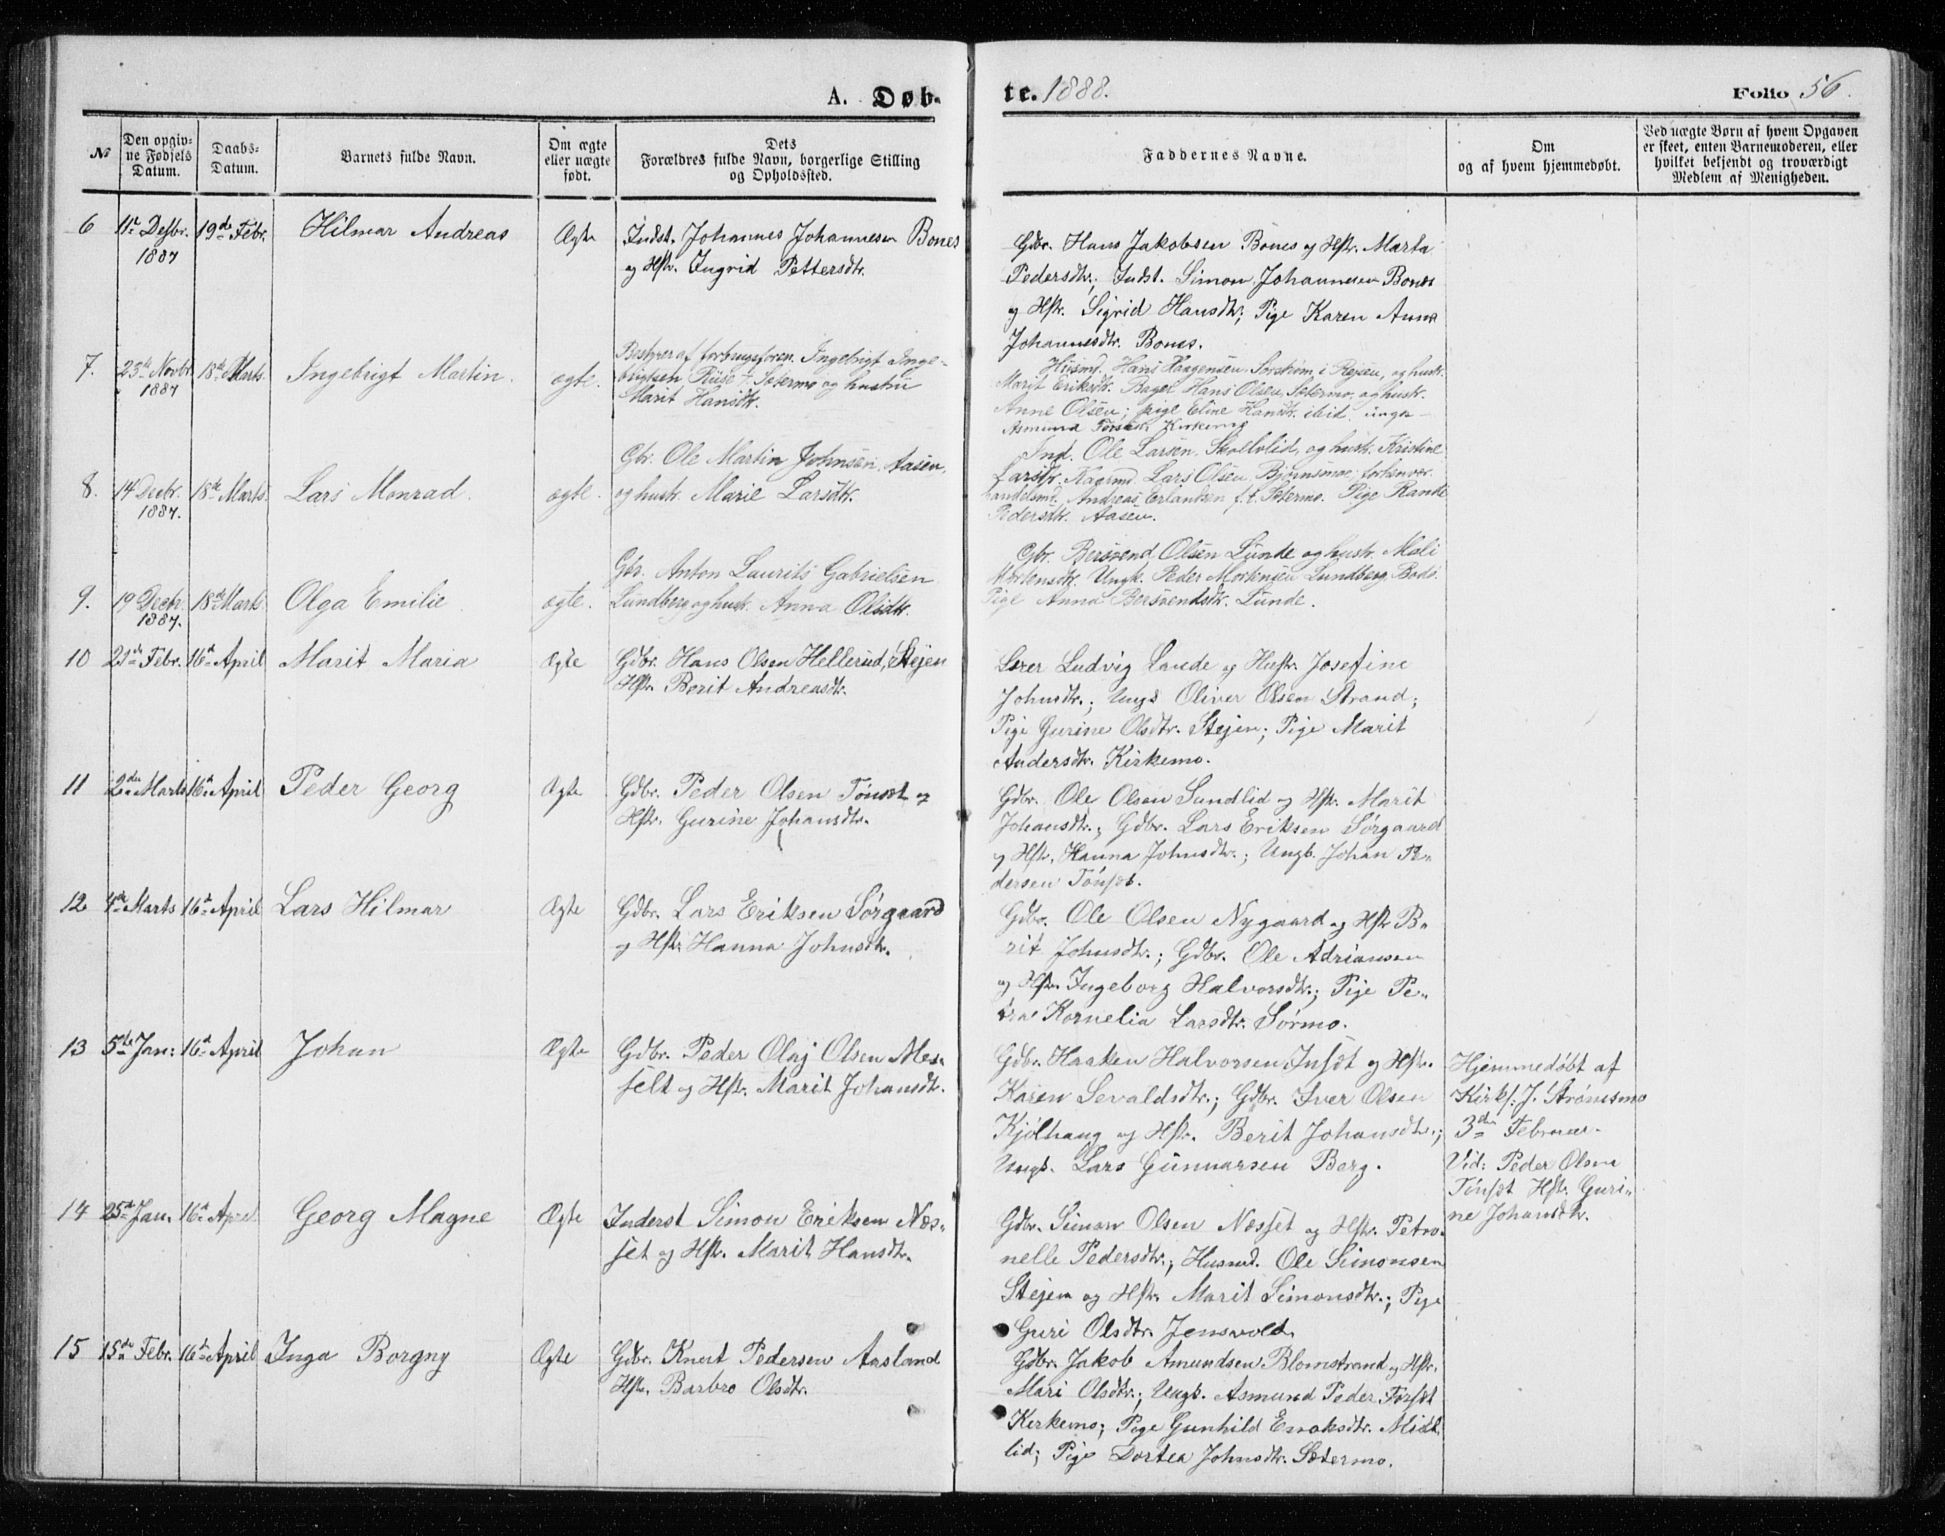 A. Døb-
te. 1888.
Folio 56.
№
Den opgiv-
ne Fødsels
Datum.
Daabs-
Datum.
Barnets fulde Navn.
Om ægte
eller uægte
født.
Dets
Forældres fulde Navn, borgerlige Stilling
og Opholdssted.
Faddernes Navne.
Om
og af hvem hjemmedøbt.
Ved uægte Børn af hvem Opgaven
er skeet, enten Barnemoderen, eller
hvilket bekjendt og troværdigt
Medlem af Menigheden.
6
11te Desbr.
1887
19de Febr.
Hilmar Andreas
Ægte
Indst. Johannes Johannesen Bones
og Hstr. Ingrid Pettersdtr.
Gdbr. Hans Jakobsen Bones og Hstr. Marta
Pedersdtr.; Indst. Simon Johannesen Bones
og Hstr. Sigrid Hansdtr; Pige Karen Anna
Johannesdtr. Bones.
7.
23de Novbr.
1887
18de Marts
Ingebrigt Martin.
ægte.
Bestyrer af forbrugsforen. Ingebrigt Inge-
brigtsen Riise, Setermo og hustru
Marit Hansdtr.
Husmd. Hans Haagensen Sørstrøm, i Rejsen, og hustr.
Marit Eriksdtr. Bager Hans Olsen Setermo, og hustr.
Anne Olsen; pige Eline Hansdtr. ibid. ungk
Asmund Kirkemo
8.
14 Decbr.
1887.
18de Marts.
Lars Monrad.
ægte.
Gbr. Ole Martin Johnsen, Aasen,
og hustr. Marie Larsdtr.
Ind. Ole Larsen, Skoelvlid, og hustr. Kristine
Larsdtr. Lars Olsen Bjørnsmo;
handelsmd. Andreas Erlandsen f. t. Setermo. Pige Rande
Pedersdtr. Aasen.
9.
19 Decbr.
1887.
18de Marts.
Olga Emilie.
ægte.
Gbr. Anton Laurits Gabrielsen
Lundberg og hustr. Anna Olsdtr.
Gbr. Bersvend Olsen Lunde og hustr. Mali
Mortensdtr. Ungk. Peder Mortensen Lundberg, Bodø.
Pige Anna Bersvendsdtr. Lunde.
10
21de Febr.
16de April
Marit Maria
Ægte
Gdbr. Hans Olsen Hellerud, Stejen
Hstr. Berit Andreasdtr.
Lærer Ludvig Lande og Hustr. Josefine
Johnsdtr.; Ungk Oliver Olsen Strand;
Pige Gurine Olsdtr. Stejen; Pige Marit
Andersdtr. Kirkemo.
11
2den Marts
16de April
Peder Georg
Ægte
Gdbr. Peder Olsen Tønset og
Hstr. Gurine Johansdtr.
Gdbr. Ole Olsen Sundlid og Hstr. Marit
Johansdtr.; Gdbr. Lars Eriksen Sørgaard
og Hstr. Hanna Johnsdtr.; Ungk. Johan Pe-
dersen Tønset.
12
4de Marts
16de April
Lars Hilmar
Ægte
Gdbr. Lars Eriksen Sørgaard
og Hstr. Hanna Johnsdtr.
Gdbr. Ole Olsen Nygaard og Hstr B-
rit Johnsdtr.; Gdbr. Ole Adriansen
og Hstr. Ingeborg Halvorsdtr.; Pige Pe-
tra Kornelia Larsdtr. Sørmo.
13
5te Jan:
16de April
Johan
Ægte
Gdbr. Peder Olaj Olsen Mes-
selt og Hstr. Marit Johansdtr.
Gdbr. Haaken Halvorsen Insæt og Hstr.
Karen Sevaldsdtr.; Gdbr. Iver Olsen
Kjølhaug og Hstr. Berit Johansdtr.;
Ungk. Lars Gunnarsen Berg.
Hjemmedøbt af
Kirks: J. Strømsmo
3de Februar.
Vid: Peder Olsen
Tønset Hstr. Guri-
ne Johansdtr.
14
25de Jan.
16de April
Georg Magne
Ægte
Inderst Simon Eriksen Næs-
set og Hstr. Marit Hansdtr.
Gdbr. Simon Olsen Næsset og Hstr. Petro-
nelle Pedersdtr.; Husmd. Ole Simonsen
Stejen og Hstr. Marit Simonsdtr.; Pige
Guri Olsdtr. Jensvold.
15
15de Febr.
16de April
Inga Borgny
Ægte
Gdbr. Knut Pedersen Aasland
Hstr. Barbro Olsdtr.
Gdbr. Jakob Amundsen Blomstrand og Hstr.
Mari Olsdtr.; Ungk. Asmund Peder Forset
Kirkemo; Pige Gunhild Enoksdtr. Midt-
lid; Pige Dortea Johnsdtr. Sætermo.